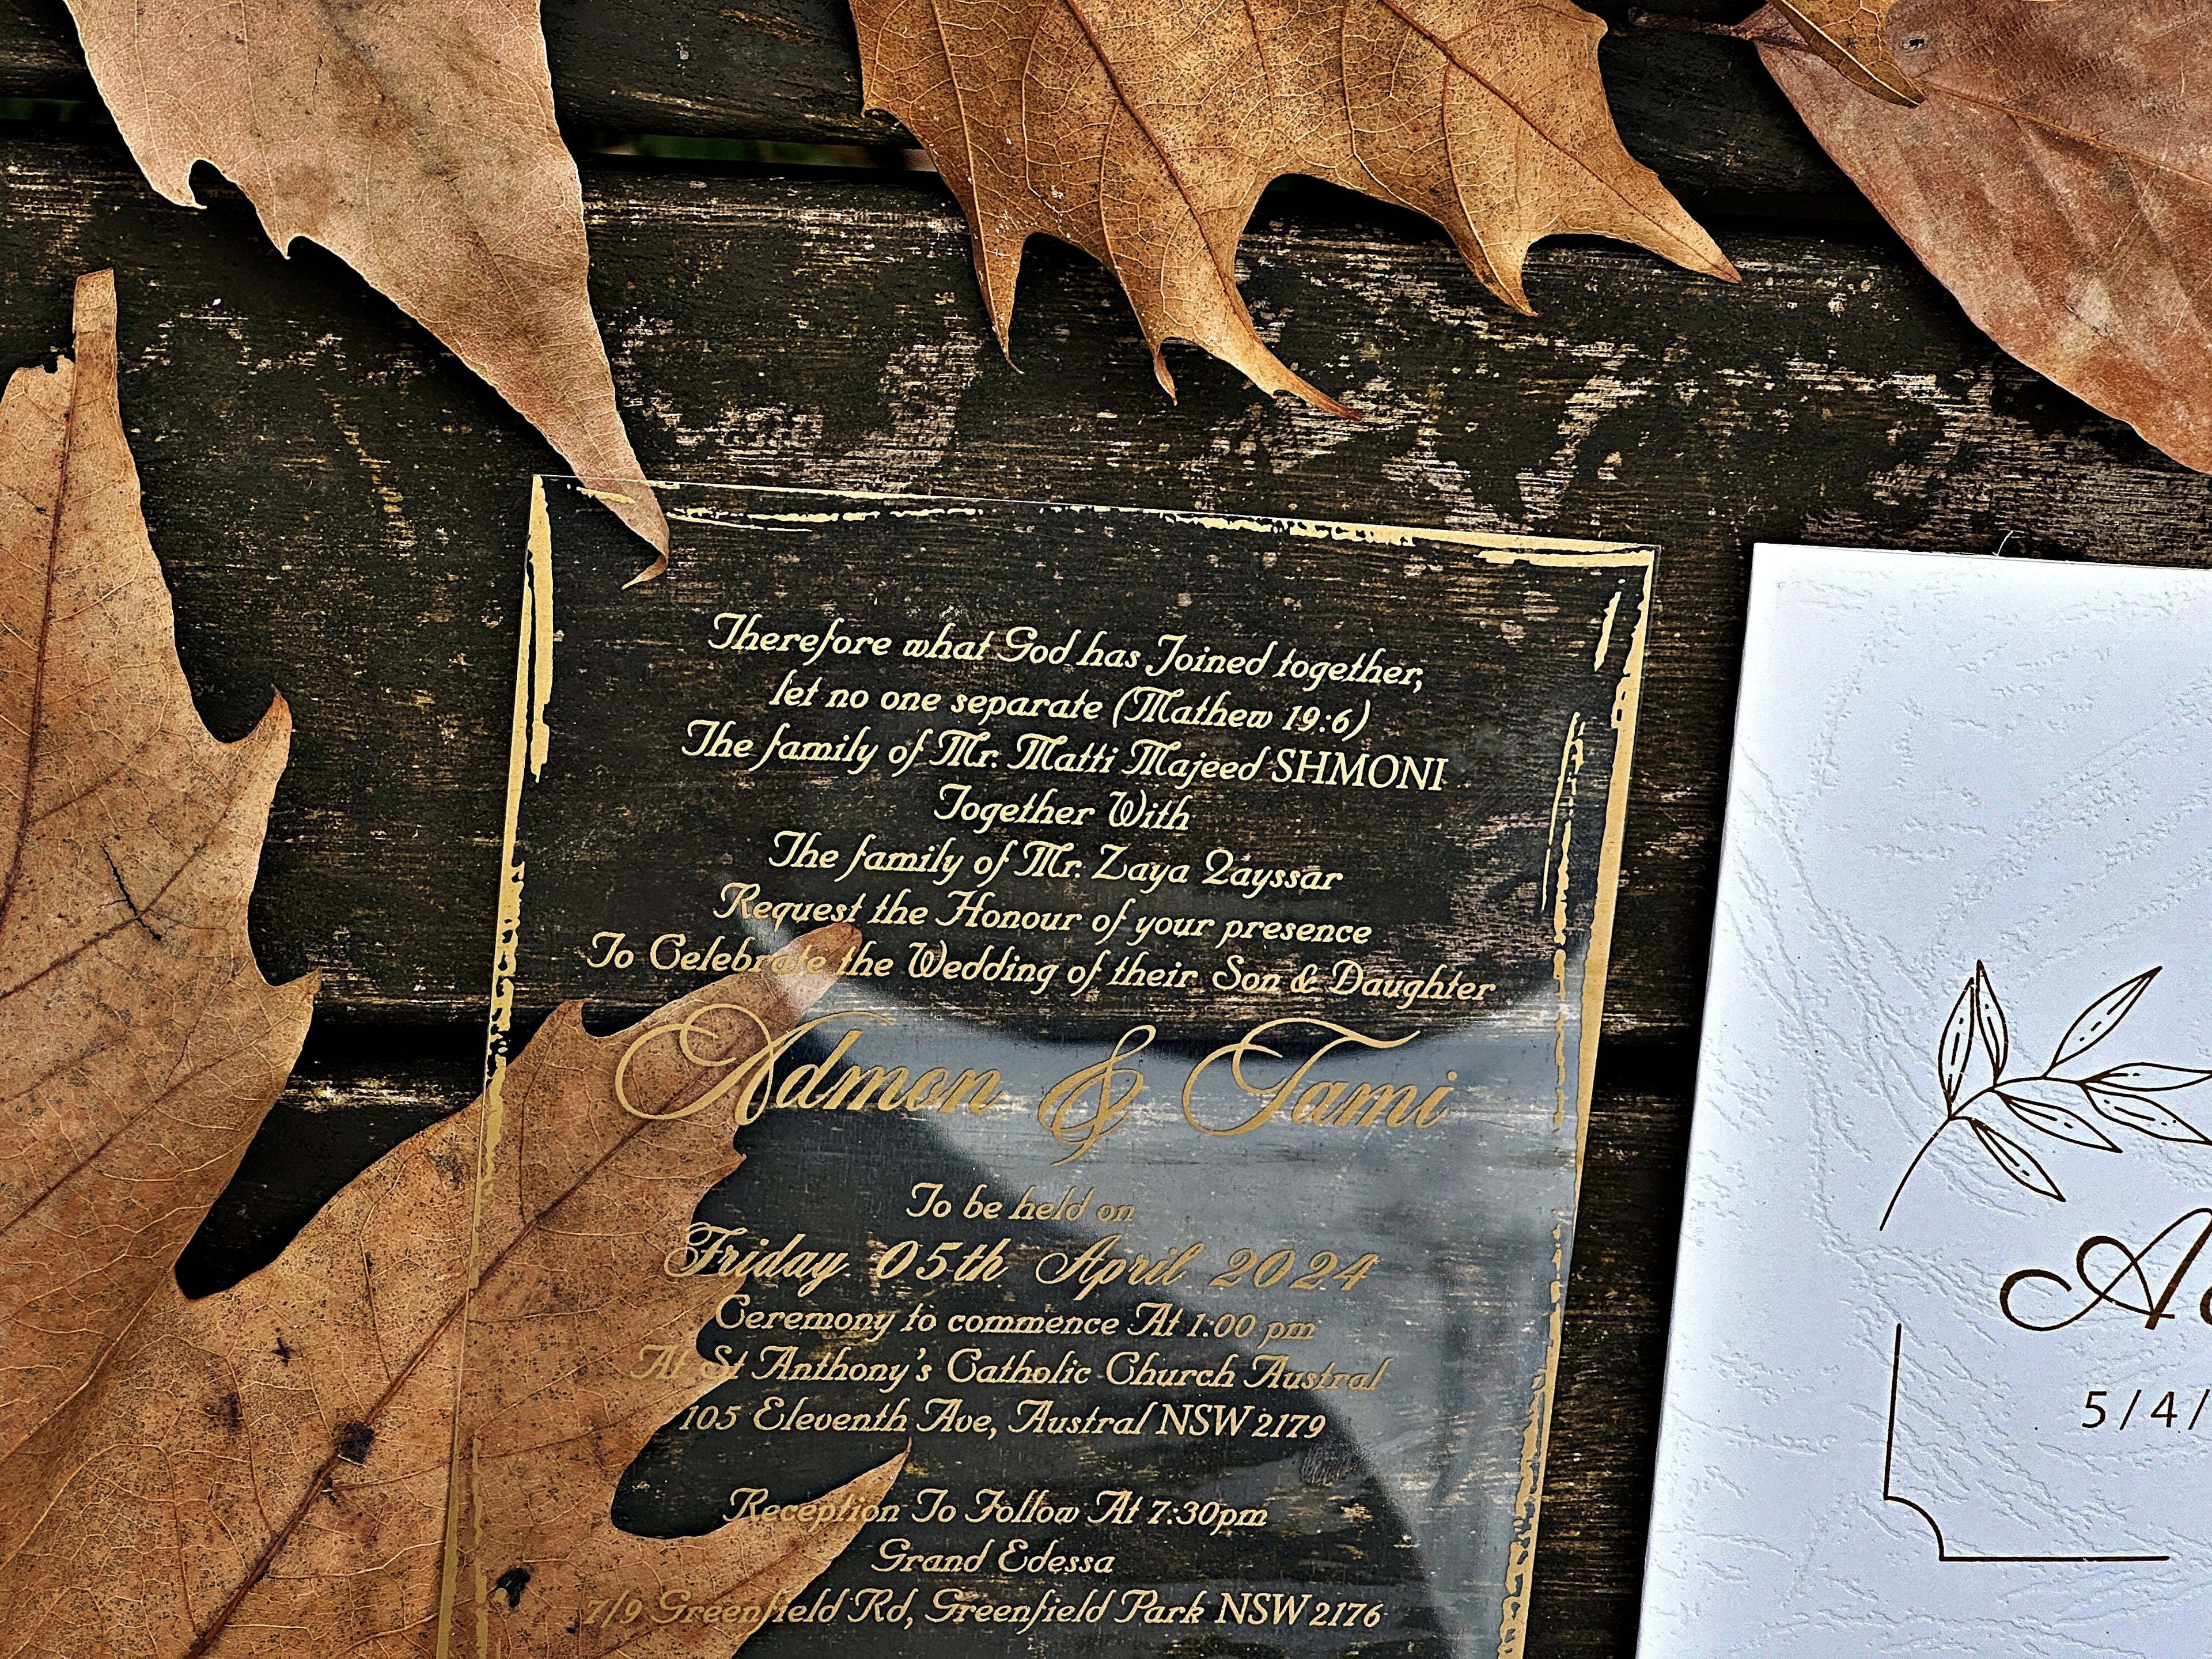 Therefore what God has Joined together,
let no one separate (Mathew 19:6)
The family of Mr. Matti Majeed SHMONI
Together With
The family of Mr. Zaya Qayssar
Request the Honour of your presence
To Celebrate the Wedding of their Son & Daughter
Admon & Tami
To be held on
Friday 05th April 2024
Ceremony to commence At 1:00 pm
At St Anthony's Catholic Church Austral
105 Eleventh Ave, Austral NSW 2179
Reception To Follow At 7:30pm
Grand Edessa
7/9 Greenfield Rd, Greenfield Park NSW 2176
5/4/